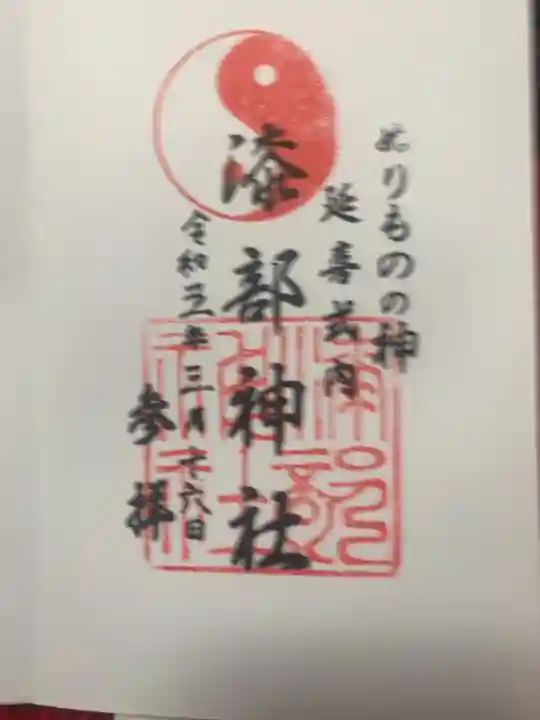 ぬりものの神
延喜式内
漆部神社
令和三年三月十六日
参拝